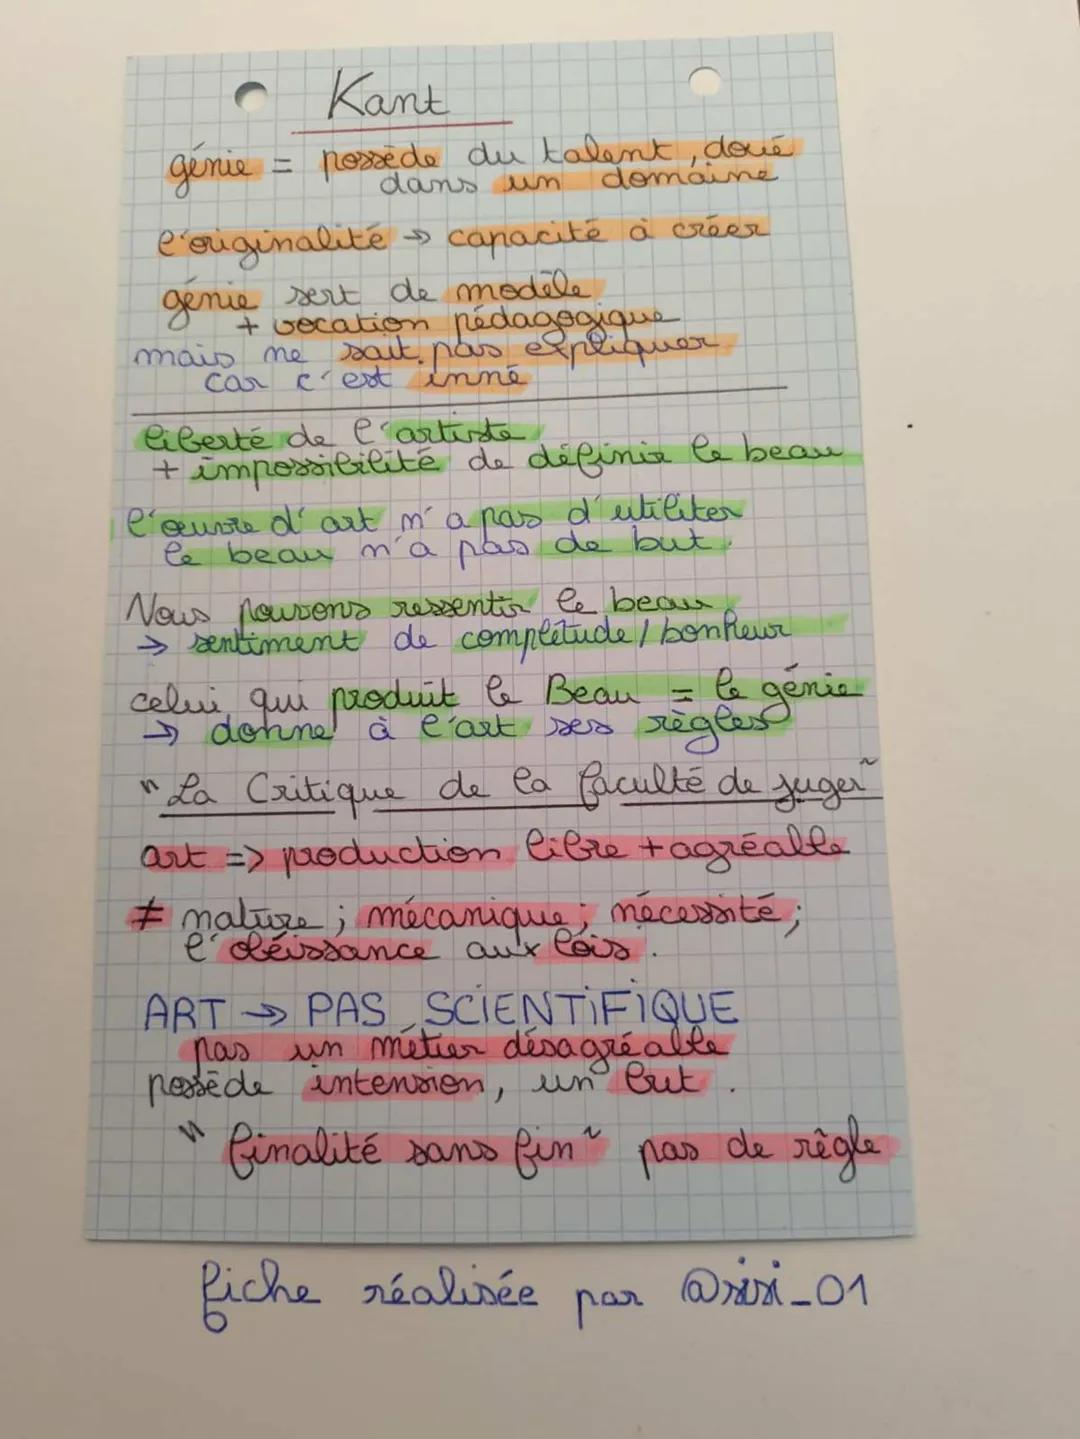 Kant
génie = possède du talent, doué
dans un domaine
l'originalité → capacité à créer
génie sert de modèle
+ vocation pédagogique
mais ne sait pas expliquer
car c'est inné
liberté de l'artiste
+ impossibilité de définir le beau
l'œuvre d'art n'a pas d'utiliter
le beau n'a pas de but.
Nous pouvons ressentir le beau
→ sentiment de complétude / bonheur
celui qui produit le Beau = le génie
→ donne à l'art ses règles
"La Critique de la faculté de juger"
art => production libre + agréable
≠ nature ; mécanique ; nécessité ;
l'obéissance aux lois.
ART → PAS SCIENTIFIQUE
pas un métier désagréable
possède intension, un but.
"finalité sans fin" pas de règle
fiche réalisée par @sisi_01